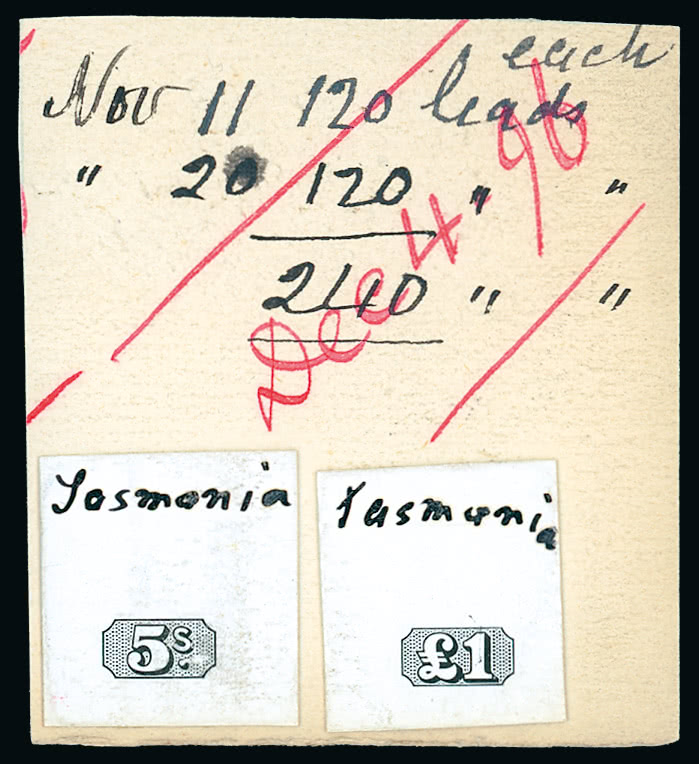 each
Nov 11 120 leads
" 20 120 " "
240 " "
Dec 4 - 96
Tasmania
5s.
Tasmania
£1